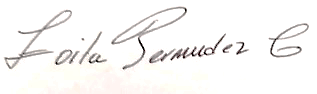 Zoila Bermudez C